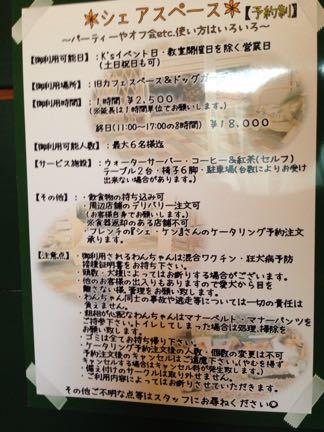 ＊シェアスペース＊【予約制】
～パーティーやオフ会etc.使い方はいろいろ～
【御利用可能日】：K'sイベント日・教室開催日を除く営業日
(土日祝日も可)
【御利用場所】：旧カフェスペース&ドッグガ
【御利用時間】：1時間 ¥2,500
(※延長は1時間単位でお願いします。)
終日(11:00～17:00の8時間) ¥18,000
【御利用可能人数】：最大6名様迄
【サービス施設】：ウォーターサーバー・コーヒー&紅茶(セルフ)
テーブル2台・椅子6脚・駐車場(台数によりお受け
出来ない場合があります。)
【その他】：・飲食物の持ち込み可
・周辺店舗のデリバリー注文可
(お客様自身でお願いします。)
※食器返却のある店舗不可
・フレンチの『シェ・ケン』さんのケータリング予約注文
承ります。
【注意点】：・御利用されるわんちゃんは混合ワクチン・狂犬病予防
接種証明書をお持ち下さい。
・頭数・犬種によってはお断りする場合がございます。
・他のお客様の出入りもありますので愛犬から目を
離さないよう、管理をお願い致します。
・わんちゃん同士の事故や逃走等については一切の責任は
負えません。
・粗相が心配なわんちゃんはマナーベルト・マナーパンツを
ご持参下さい。トイレしてしまった場合は処理、掃除を
お願い致します。
・ゴミは全てお持ち帰り下さい。
・ケータリング予約注文後の人数、個数の変更は不可
・予約注文後のキャンセルはご遠慮下さい。(やむを得ず
キャンセルする場合はキャンセル料が発生致します。)
・備え付けのサークルは取り外せません。
・ご利用内容によってはお断りさせていただきます。
その他ご不明な点等はスタッフにお尋ねください◎